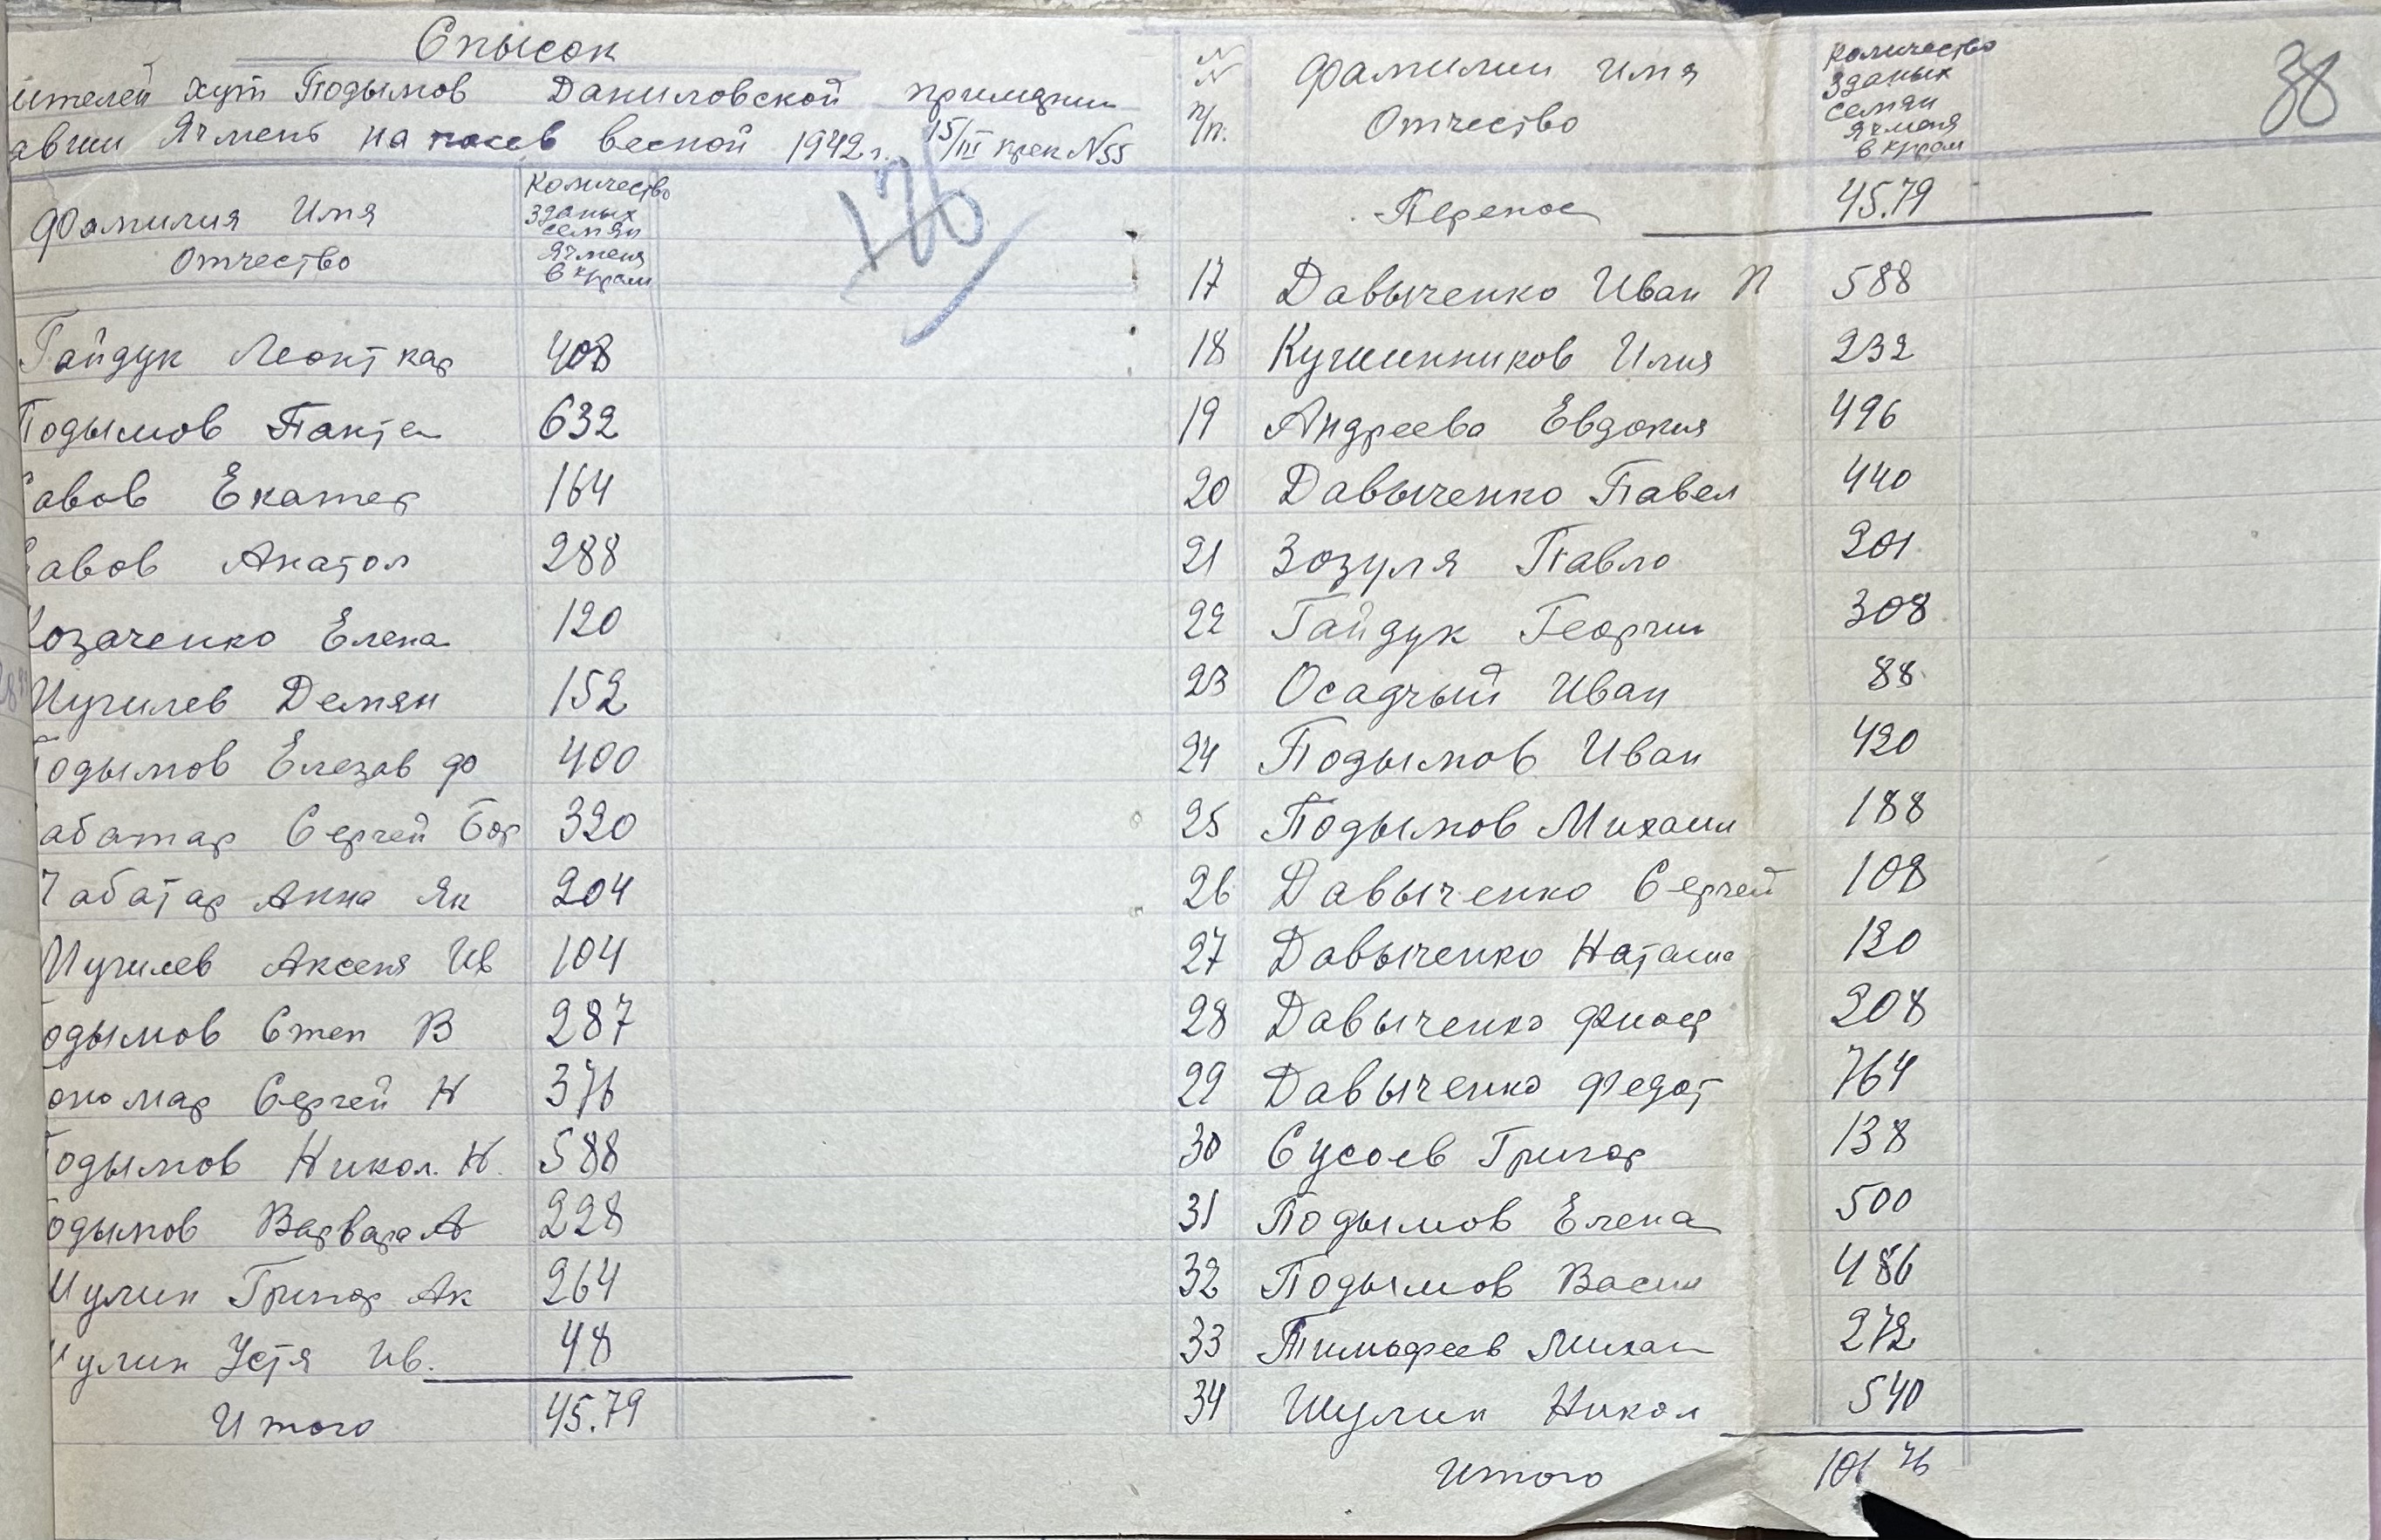 Спысок
ителей хут Подымов Даниловской примарии
авши Ячмень на посев весной 1942 г. 15/III прек N55
126
Фамилия Имя
Отчество
Количество
зданых
семян
Ячменя
в кграм
Гайдук Леонт кар 408
Подымов Панте 632
авов Екатер 164
авов Анатол 288
Козаченко Елена 120
Шучилев Демян 152
одымов Елезав фо 400
абатар Сергей Бор 320
Чабатар Анна Як 204
Шучилев Аксеня Ив 104
одымов Степ В 287
ономар Сергей Н 376
одымов Никол. Н. 588
одымов Варвара А 228
Шулин Григор Ак 264
улин Устя Ив. 48
Итого 45.79
38
NN
п/п.
Фамилии имя
Отчество
Количество
зданых
семян
Ячменя
в кграм
Перенос 45.79
17 Давыченко Иван П 588
18 Кушинников Илия 232
19 Андреева Евдокия 496
20 Давыченко Павел 440
21 Зозуля Павло 201
22 Гайдук Георгии 308
23 Осадчый Иван 88
24 Подымов Иван 420
25 Подымов Михаил 188
26 Давыченко Сергей 108
27 Давыченко Наташа 120
28 Давыченко 208
29 Давыченко Федот 764
30 Сусоев Григор 138
31 Подымов Елена 500
32 Подымов Васил 486
33 Тимофеев Михаи 272
34 Шулин Никол 540
Итого 101 76